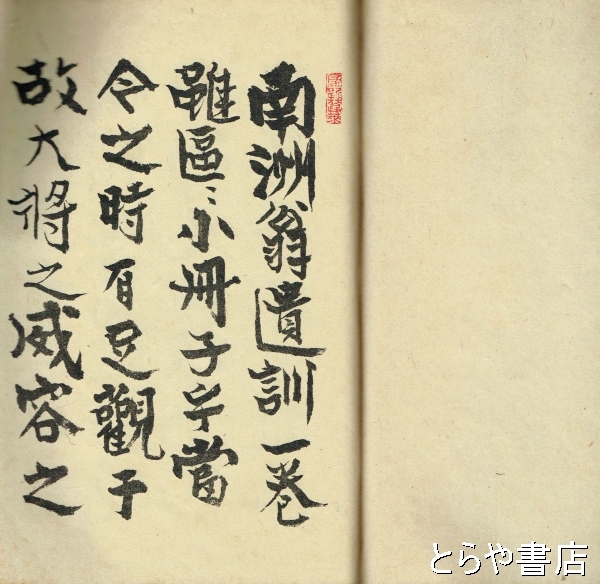 南洲翁遺訓一巻
雖區〻小冊子乎當
今之時有足觀于
故大将之威容之
とらや書店